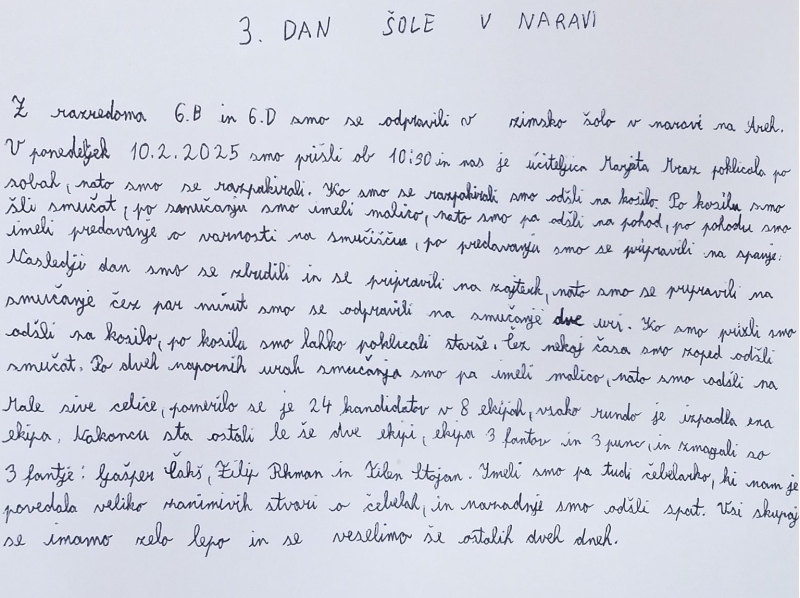 3. DAN ŠOLE V NARAVI
Z razredoma 6.B in 6.D smo se odpravili v zimsko šolo v naravi na Areh.
V ponedeljek 10.2.2025 smo prišli ob 10:30 in nas je učiteljica Marjeta Mraz poklicala po
sobah, nato smo se razpakirali. Ko smo se razpakirali smo odšli na kosilo. Po kosilu smo
šli smučat, po smučanju smo imeli malico, nato smo pa odšli na pohod, po pohodu smo
imeli predavanje o varnosti na smučišču, po predavanju smo se pripravili na spanje.
Naslednji dan smo se zbudili in se pripravili na zajterk, nato smo se pripravili na
smučanje čez par minut smo se odpravili na smučanje dve uri. Ko smo prišli smo
odšli na kosilo, po kosilu smo lahko poklicali starše. Čez nekaj časa smo zoped odšli
smučat. Po dveh napornih urah smučanja smo pa imeli malico, nato smo odšli na
Male sive celice, pomerilo se je 24 kandidatov v 8 ekipah, vsako rundo je izpadla ena
ekipa. Nakoncu sta ostali le še dve ekipi, ekipa 3 fantov in 3 punc, in zmagali so
3 fantje: Gašper Filip in Stojan. Imeli smo pa tudi čebelarko, ki nam je
povedala veliko zanimivih stvari o čebelah, in nazadnje smo odšli spat. Vsi skupaj
se imamo zelo lepo in se veselimo še ostalih dveh dneh.